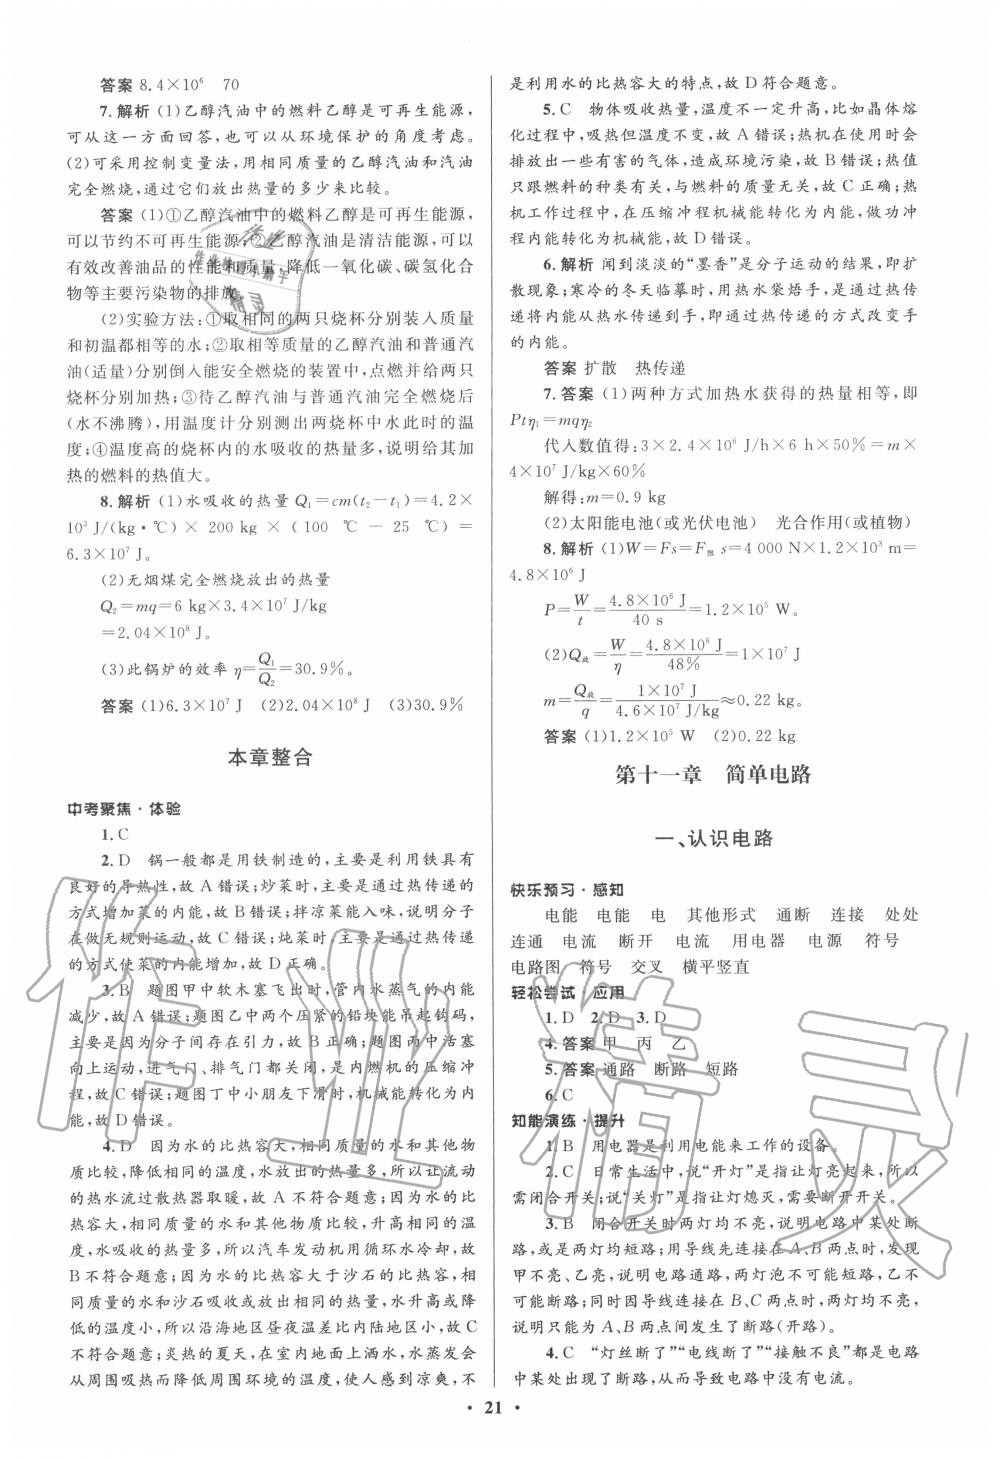 答案 8.4×10⁶ 70
7.解析 (1)乙醇汽油中的燃料乙醇是可再生能源,
可从这一方面回答,也可以从环境保护的角度考虑。
(2)可采用控制变量法,用相同质量的乙醇汽油和汽油
完全燃烧,通过它们放出热量的多少来比较。
答案 (1)①乙醇汽油中的燃料乙醇是可再生能源,
可以节约不可再生能源;②乙醇汽油是清洁能源,可以
有效改善油品的性能和质量,降低一氧化碳、碳氢化合
物等主要污染物的排放。
(2)实验方法:①取相同的两只烧杯分别装入质量
和初温都相等的水;②取相等质量的乙醇汽油和普通汽
油(适量)分别倒入能安全燃烧的装置中,点燃并给两只
烧杯分别加热;③待乙醇汽油与普通汽油完全燃烧后
(水不沸腾),用温度计分别测出两烧杯中水此时的温
度;④温度高的烧杯内的水吸收的热量多,说明给其加
热的燃料的热值大。
8.解析 (1)水吸收的热量Q₁=cm(t₂-t₁)=4.2×
10³J/(kg·℃)×200 kg×(100 ℃-25 ℃)=
6.3×10⁷J。
(2)无烟煤完全燃烧放出的热量
Q₂=mq=6 kg×3.4×10⁷J/kg
=2.04×10⁸J。
(3)此锅炉的效率η=Q₁/Q₂=30.9%。
答案 (1)6.3×10⁷J (2)2.04×10⁸J (3)30.9%
本章整合
中考聚焦·体验
1.C
2.D 锅一般都是用铁制造的,主要是利用铁具有
良好的导热性,故A错误;炒菜时,主要是通过热传递的
方式增加菜的内能,故B错误;拌凉菜能入味,说明分子
在做无规则运动,故C错误;炖菜时,主要是通过热传递
的方式使菜的内能增加,故D正确。
3.B 题图甲中软木塞飞出时,管内水蒸气的内能
减少,故A错误;题图乙中两个压紧的铅块能吊起钩码,
主要是因为分子间存在引力,故B正确;题图丙中活塞
向上运动,进气门、排气门都关闭,是内燃机的压缩冲
程,故C错误;题图丁中小朋友下滑时,机械能转化为内
能,故D错误。
4.D 因为水的比热容大,相同质量的水和其他物
质比较,降低相同的温度,水放出的热量多,所以让流动
的热水流过散热器取暖,故A不符合题意;因为水的比
热容大,相同质量的水和其他物质比较,升高相同的温
度,水吸收的热量多,所以汽车发动机用循环水冷却,故
B不符合题意;因为水的比热容大于沙石的比热容,相
同质量的水和沙石吸收或放出相同的热量,水升高或降
低的温度小,所以沿海地区昼夜温差比内陆地区小,故C
不符合题意;炎热的夏天,在室内地面上洒水,水蒸发会
从周围吸热而降低周围环境的温度,使人感到凉爽,不
是利用水的比热容大的特点,故D符合题意。
5.C 物体吸收热量,温度不一定升高,比如晶体熔
化过程中,吸热但温度不变,故A错误;热机在使用时会
排放出一些有害的气体,造成环境污染,故B错误;热值
只跟燃料的种类有关,与燃料的质量无关,故C正确;热
机工作过程中,在压缩冲程机械能转化为内能,做功冲
程内能转化为机械能,故D错误。
6.解析 闻到淡淡的“墨香”是分子运动的结果,即扩
散现象;寒冷的冬天临摹时,用热水袋焐手,是通过热传
递将内能从热水传递到手,即通过热传递的方式改变手
的内能。
答案 扩散 热传递
7.答案 (1)两种方式加热水获得的热量相等,即
Ptη₁=mqη₂
代入数值得:3×2.4×10⁶J/h×6 h×50%=m×
4×10⁷J/kg×60%
解得:m=0.9 kg
(2)太阳能电池(或光伏电池) 光合作用(或植物)
8.解析 (1)W=Fs=F阻s=4 000 N×1.2×10³m=
4.8×10⁶J
P=W/t=4.8×10⁶J/40 s=1.2×10⁵W。
(2)Q放=W/η=4.8×10⁶J/48%=1×10⁷J
m=Q放/q=1×10⁷J/4.6×10⁷J/kg≈0.22 kg。
答案 (1)1.2×10⁵ W (2)0.22 kg
第十一章 简单电路
一、认识电路
快乐预习·感知
电能 电能 电 其他形式 通断 连接 处处
连通 电流 断开 电流 用电器 电源 符号
电路图 符号 交叉 横平竖直
轻松尝试·应用
1.D 2.D 3.D
4.答案 甲 丙 乙
5.答案 通路 断路 短路
6.C
知能演练·提升
1.B 用电器是利用电能来工作的设备。
2.C 日常生活中,说“开灯”是指让灯亮起来,所以
需闭合开关;说“关灯”是指让灯熄灭,需要断开开关。
3.B 闭合开关时两灯均不亮,说明电路中某处断
路,或是两灯均短路;用导线先连接在A、B两点时,发现
甲不亮、乙亮,说明电路通路,两灯泡不可能短路,乙不
可能断路;同时因导线连接在B、C两点时,两灯均不亮,
说明只能为A、B两点间发生了断路(开路)。
4.C “灯丝断了”“电线断了”“接触不良”都是电路
中某处出现了断路,从而导致电路中没有电流。
·21·
作业精灵